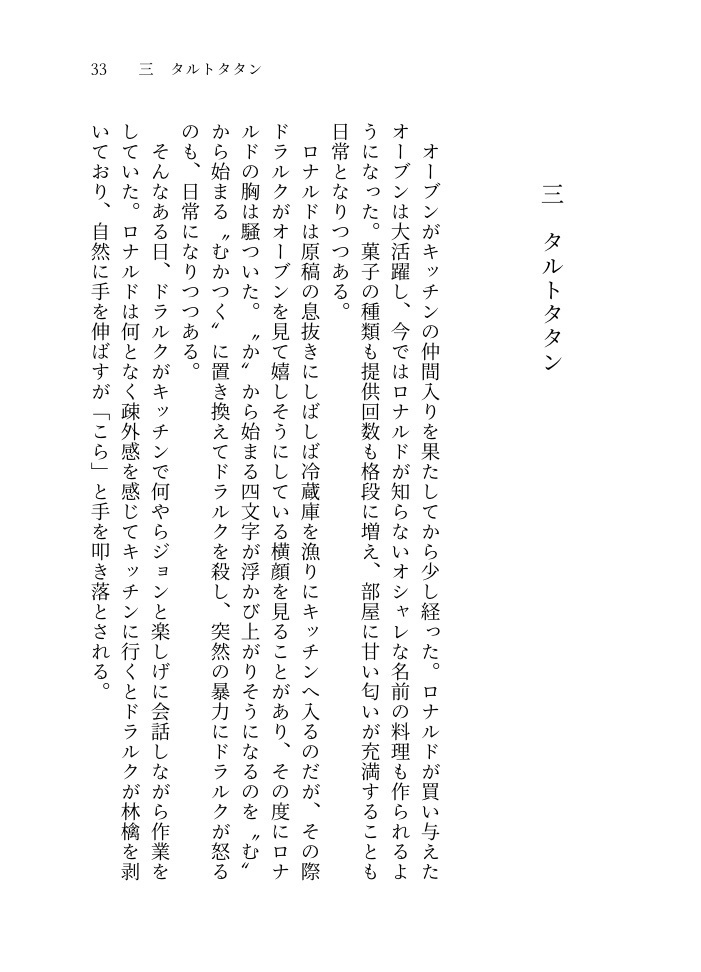 33　三　タルトタタン
三　タルトタタン
　オーブンがキッチンの仲間入りを果たしてから少し経った。ロナルドが買い与えた
オーブンは大活躍し、今ではロナルドが知らないオシャレな名前の料理も作られるよ
うになった。菓子の種類も提供回数も格段に増え、部屋に甘い匂いが充満することも
日常となりつつある。
　ロナルドは原稿の息抜きにしばしば冷蔵庫を漁りにキッチンへ入るのだが、その際
ドラルクがオーブンを見て嬉しそうにしている横顔を見ることがあり、その度にロナ
ルドの胸は騒ついた。〝か〟から始まる四文字が浮かび上がりそうになるのを〝む〟
から始まる〝むかつく〟に置き換えてドラルクを殺し、突然の暴力にドラルクが怒る
のも、日常になりつつある。
　そんなある日、ドラルクがキッチンで何やらジョンと楽しげに会話しながら作業を
していた。ロナルドは何となく疎外感を感じてキッチンに行くとドラルクが林檎を剥
いており、自然に手を伸ばすが「こら」と手を叩き落とされる。